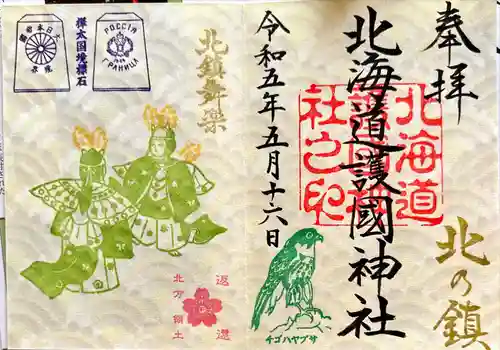 奉拝
北海道護國神社
北海道護國神社之印
北の鎮
令和五年五月十六日
チゴハヤブサ
北鎮舞楽
樺太国境標石
大日本帝國
境界
РОССІЯ
ГРАНИЦА
返還
北方領土